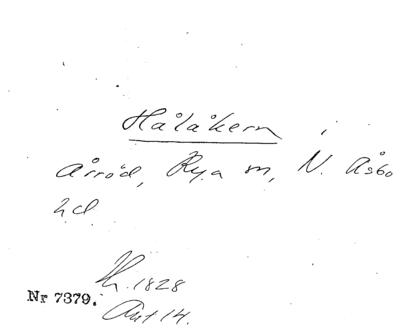 Hålåkern i
Årröd, Rya sn, N. Åsbo
hd.
Nr 7379.
1828
Akt 14.